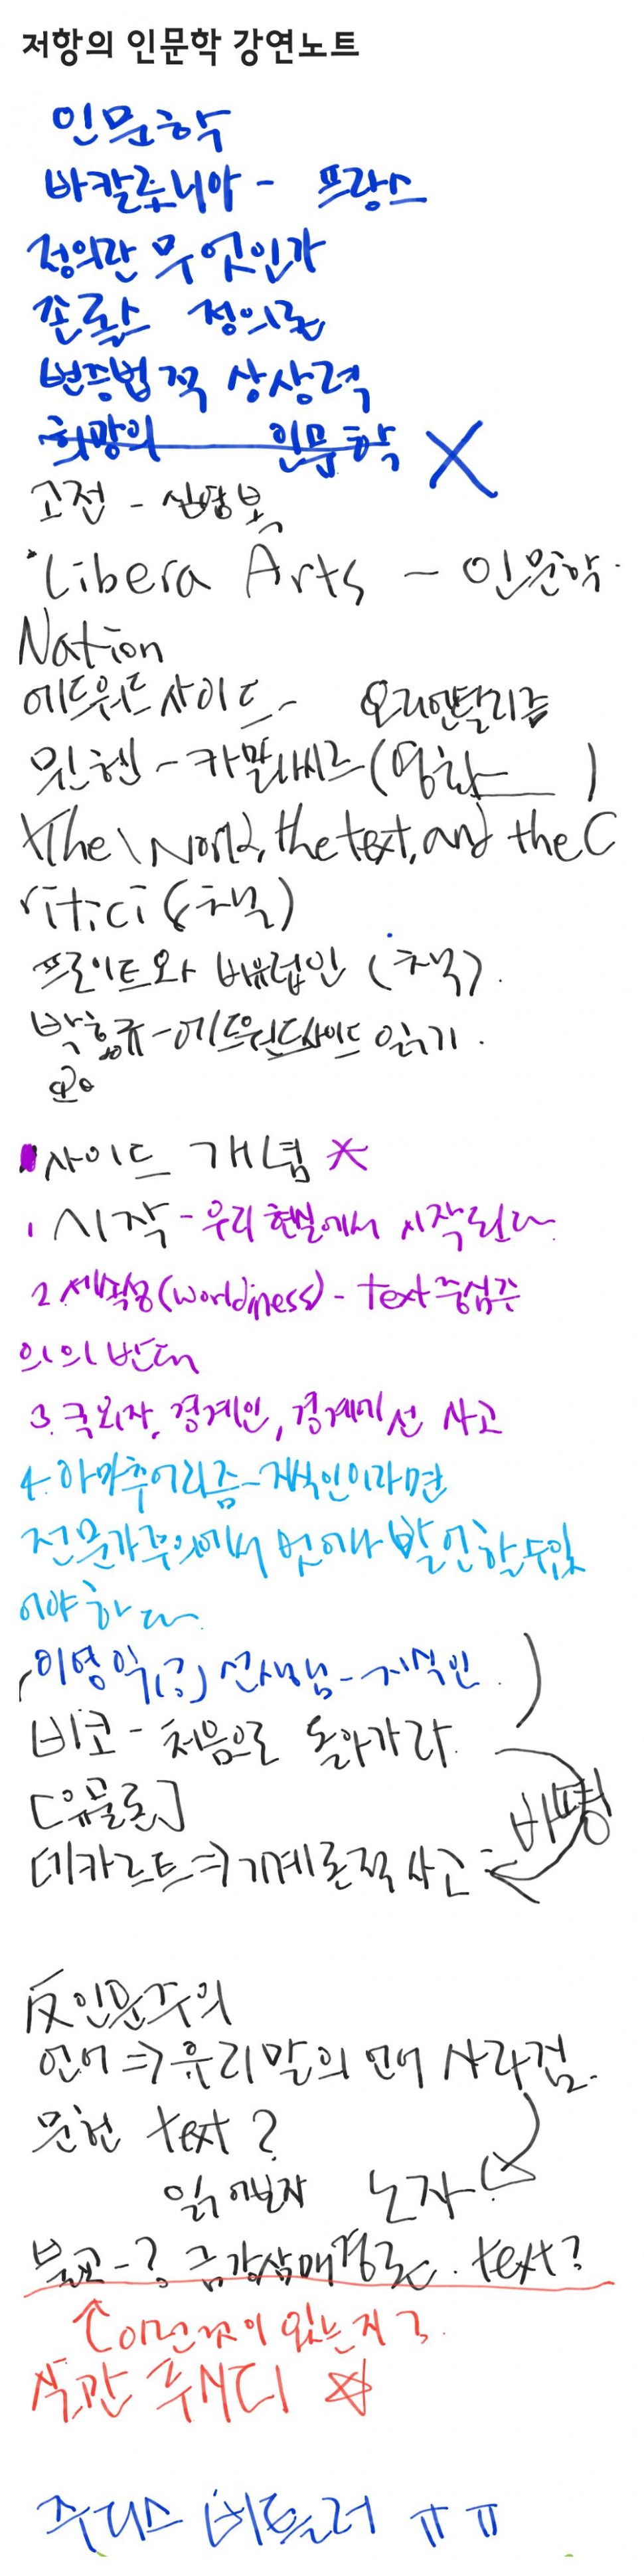 저항의 인문학 강연노트
인문학
바칼로니아 - 프랑스
정의란 무엇인가
존롤스 정의론
변증법적 상상력
희망의 인문학 X
고전 - 심방북
Libera Arts - 인문학
Nation
에드워드 사이드 - 오리엔탈리즘
뮌헨 - 카말싸르 ( )
The World, the text, and the C
ritici (책)
프로이트와 비유럽인 (책).
박홍규 - 에드워드사이드 읽기.
사이드 개념
1 시작 - 우리 현실에서 시작된다
2. 세속성 (worldiness) - text 중심주
의의 반대
3. 국외자, 경계인, 경계에선 사고
4. 아마추어리즘 - 지식인이라면
전문가주의에서 벗어나 발언할수있
어야 한다
이영익(?) 선생님 - 지식인
비코 - 처음으로 돌아가라.
[유물론]
데카르트 => 기계론적 사고
비평
反인문주의
언어 => 우리말의 언어 사라짐.
문헌 text ?
읽어보자 노자
불교 - ? 금강삼매경론. text?
어떤것이 있는지 ?
직관 푸시디
주디스 버틀러 ㅠㅠ